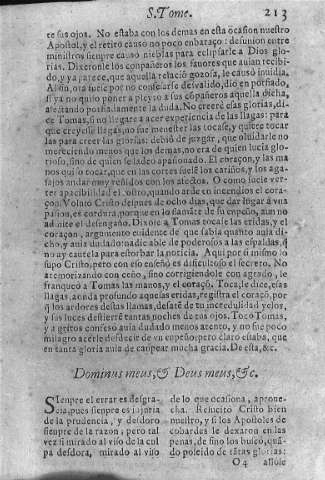 S. Tome. 213
te sus ojos. No estaba con los demas en esta ocasion nuestro
Apostol, y el retiro causo no poco embaraço: desunion entre
ministros siempre causò nieblas para eclipsarle a Dios glo-
rias. Dixeronle los conpañeros los favores que avian recibi-
do, y ya parece, que aquella relaciò gozosa, le causò invidia.
Assi on, ora fuese por no confesarle desvalido, diò en porfiado,
si ya no quiso poner a pleyto a sus cõpañeros aquella dicha,
afectando porfiadamente la duda. No creerè esas glorias, di-
ce Tomas, si no llegare a acer experiencia de las llagas: para
que creyese llagas, no fue menester las tocase, y quiere tocar
las para creer las glorias: debiò de juzgar, que olvidarle no
mereciendo menos que los demas, no era de quien lucia glo-
rioso, sino de quien se ladeo apasionado. El coraçon, y las ma
nos quiso tocar, que en las cortes suele los cariños, y los aga-
sajos andar muy reñidos con los afectos. O como suele ver-
ter apacibilidad el rostro, quando arde en incendios el cora-
çon. Volvio Cristo despues de ocho dias, que dar lugar a una
pasion, es cordura, porque en lo flamãte de su enpeño, aun no
admite el desengaño. Dixole a Tomas tocase las eridas, y el
coraçon, argumento evidente de que sabia quanto avia di-
cho, y avia dudado: nadie able de poderosos a las espaldas, q̃
no ay cautela para estorbar la noticia. Aqui por si mismo lo
supo Cristo, pero con eso enseñò es dificultoso el secreto. No
atemorizando con ceño, sino corrigiendole con agrado, le
franqueò a Tomas las manos, y el coraçõ. Toca, le dice, esas
llagas, aonda profundo aquesas eridas, registra el coraçõ, por
q̃ los ardores de estas llamas, desatẽ de tu incredulidad yelos,
y las luces destierrẽ tantas noches de tus ojos. Tocò Tomas,
y a gritos confesò avia dudado menos atento, y no fue poco
milagro acerle desdecir de un enpeño: pero claro estaba, que
en tanta gloria avia de canpear mucha gracia. De esta, &c.
Dominus meus, & Deus meus, &c.
SIenpre el errar es desgra-
cia, pues sienpre es injuria
de la prudencia, y desdoro
sienpre de la razon; pero tal
vez si mirado al viso de la cul
pa desdora, mirado al viso
de lo que ocasiona, aprone-
cha. Resucito Cristo bien
nuestro, y si los Apostoles de
cobardes le dexaron en las
penas, de fino los buscò, quã-
do poseido de tãtas glorias:
O 4 assole